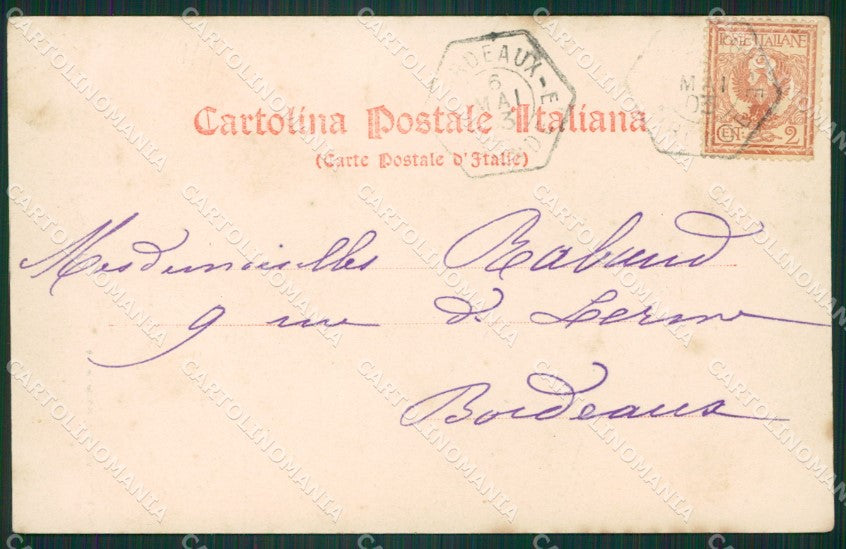 Cartolina Postale Italiana
(Carte Postale d'Italie)
RDEAUX-E
6
MAI
3
POSTE ITALIANE
CENT. 2
MAI
03
Mesdemoiselles Rabaud
9 rue de Lerme
Bordeaux
CARTOLINOMANIA